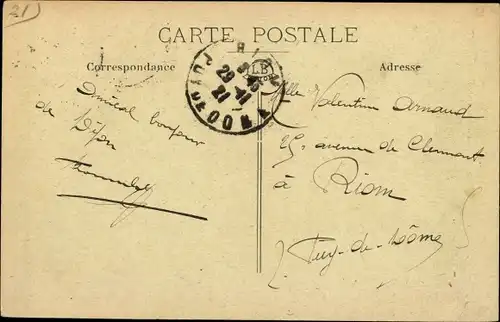 21
CARTE POSTALE
Correspondance
Adresse
LB
PUY DE DOME
29-11
21
Amical bonjour
de Dijon
Mlle Valentine Arnaud
25 avenue de Clermont
à Riom
Puy-de-Dôme